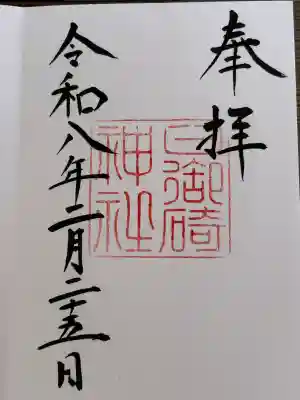 奉拝
上御碕
神社
令和八年二月二十五日